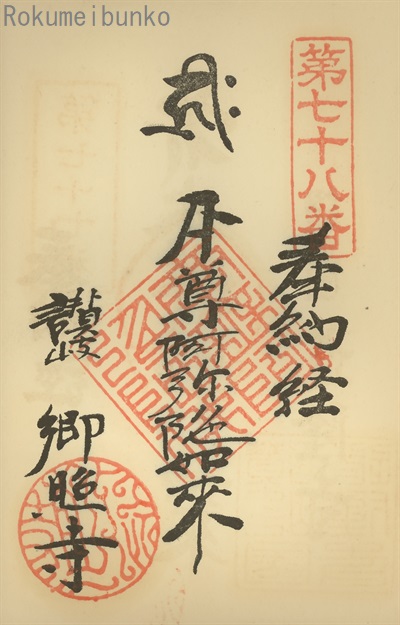 Rokumeibunko
第七十八番
奉納経
本尊阿弥陀如来
讃岐
郷照寺